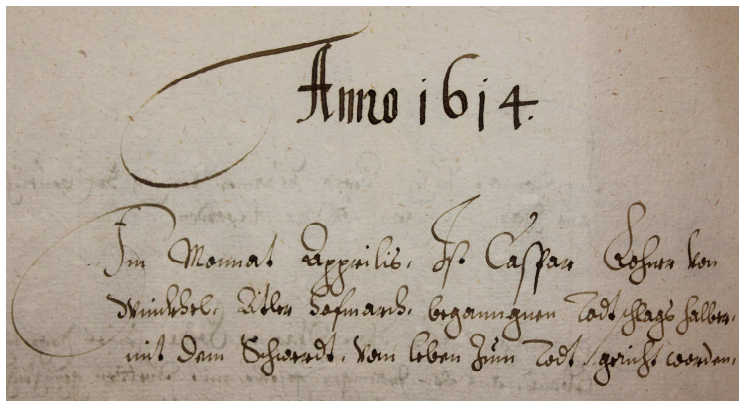 Anno 1614.
Im Monnat Apprilis, Ist Caspar Lehner von
Winckhel, Ätler hofmarch, beganngnen Todtschlags halber,
mit dem Schwerdt, vom leben zum Todt gericht worden,